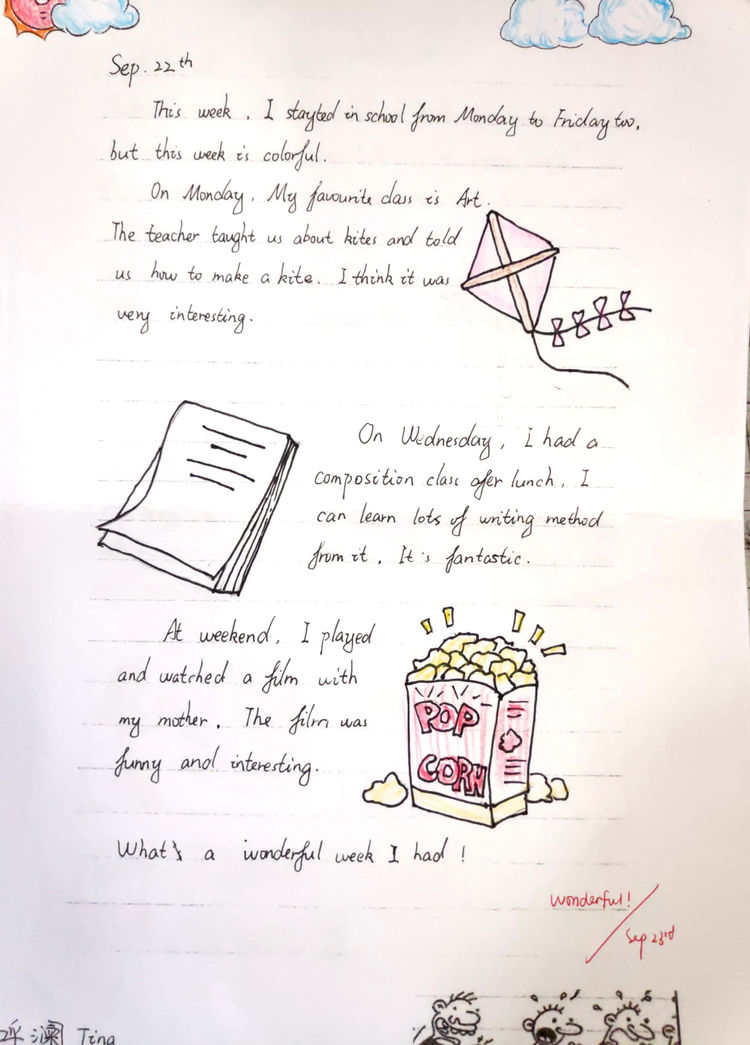 Sep. 22th
This week, I stayted in school from Monday to Friday too,
but this week is colorful.
On Monday, My favourite class is Art.
The teacher taught us about kites and told
us how to make a kite. I think it was
very interesting.
On Wednesday, I had a
composition class afer lunch, I
can learn lots of writing method
from it, It's fantastic.
At weekend, I played
and watched a film with
my mother. The film was
funny and interesting.
POP
CORN
What's a wonderful week I had!
wonderful!
Sep 23rd
Tina